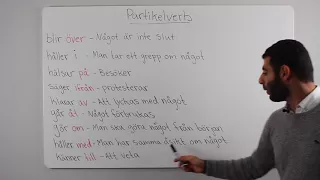 Partikelverb
blir över - Något är inte slut
håller i - Man har ett grepp om något
hälsar på - Besöker
säger ifrån - protesterar
klarar av - Att lyckas med något
går åt - Något förbrukas
gör om - Man ska göra något från början
håller med - Man har samma åsikt om något
känner till - Att veta